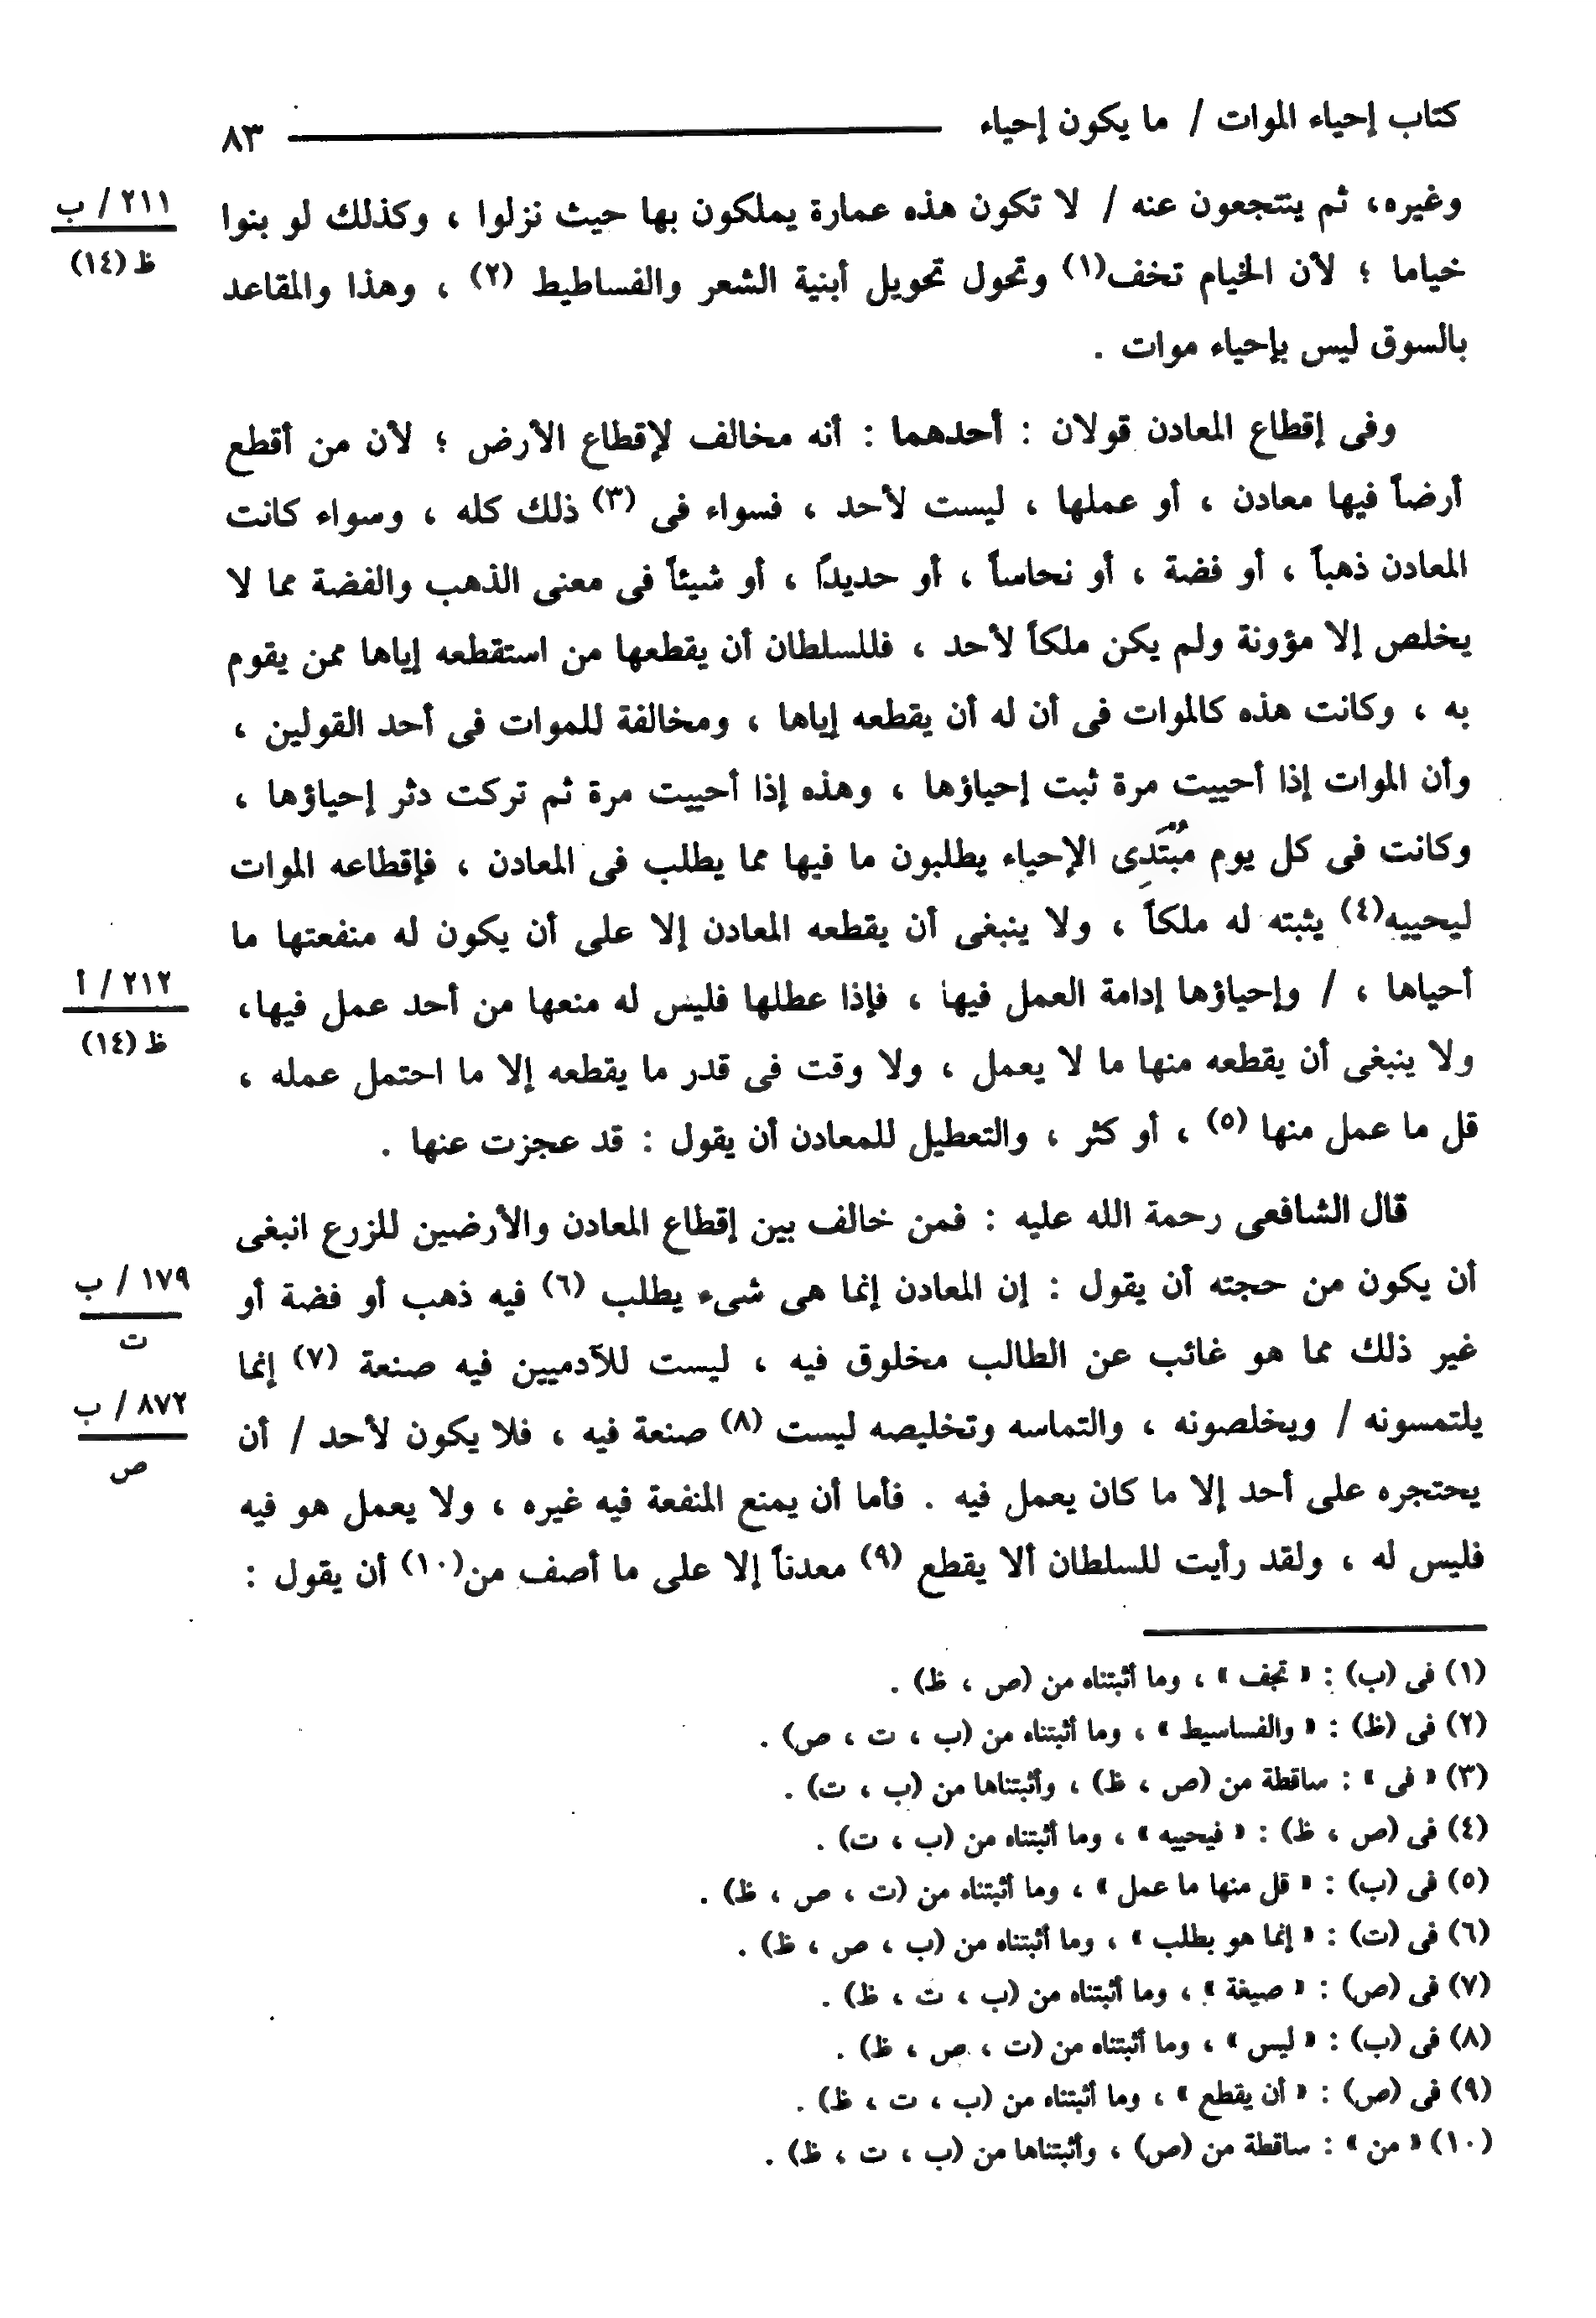 كتاب إحياء الموات / ما يكون إحياء ــــــــ ٨٣
وغيره، ثم ينتجعون عنه / لا تكون هذه عمارة يملكون بها حيث نزلوا ، وكذلك لو بنوا
٢١١ / ب
ظ (١٤)
خياما ؛ لأن الخيام تخف(١) وتحول تحويل أبنية الشعر والفساطيط (٢) ، وهذا والمقاعد
بالسوق ليس بإحياء موات .
وفى إقطاع المعادن قولان : أحدهما : أنه مخالف لإقطاع الأرض ؛ لأن من أقطع
أرضاً فيها معادن ، أو عملها ، ليست لأحد ، فسواء فى (٣) ذلك كله ، وسواء كانت
المعادن ذهباً ، أو فضة ، أو نحاساً ، أو حديداً ، أو شيئاً فى معنى الذهب والفضة مما لا
يخلص إلا مؤونة ولم يكن ملكاً لأحد ، فللسلطان أن يقطعها من استقطعه إياها ممن يقوم
به ، وكانت هذه كالموات فى أن له أن يقطعه إياها ، ومخالفة للموات فى أحد القولين ،
وأن الموات إذا أحييت مرة ثبت إحياؤها ، وهذه إذا أحييت مرة ثم تركت دثر إحياؤها ،
وكانت فى كل يوم مُبْتَدِى الإحياء يطلبون ما فيها مما يطلب فى المعادن ، فإقطاعه الموات
ليحييه(٤) يثبته له ملكاً ، ولا ينبغى أن يقطعه المعادن إلا على أن يكون له منفعتها ما
أحياها ، / وإحياؤها إدامة العمل فيها ، فإذا عطلها فليس له منعها من أحد عمل فيها،
٢١٢ / أ
ظ (١٤)
ولا ينبغى أن يقطعه منها ما لا يعمل ، ولا وقت فى قدر ما يقطعه إلا ما احتمل عمله ،
قل ما عمل منها (٥) ، أو كثر ، والتعطيل للمعادن أن يقول : قد عجزت عنها .
قال الشافعى رحمة الله عليه : فمن خالف بين إقطاع المعادن والأرضين للزرع انبغى
أن يكون من حجته أن يقول : إن المعادن إنما هى شىء يطلب (٦) فيه ذهب أو فضة أو
١٧٩ / ب
ت
غير ذلك مما هو غائب عن الطالب مخلوق فيه ، ليست للآدميين فيه صنعة (٧) إنما
يلتمسونه / ويخلصونه ، والتماسه وتخليصه ليست (٨) صنعة فيه ، فلا يكون لأحد / أن
٨٧٢ / ب
ص
يحتجره على أحد إلا ما كان يعمل فيه . فأما أن يمنع المنفعة فيه غيره ، ولا يعمل هو فيه
فليس له ، ولقد رأيت للسلطان ألا يقطع (٩) معدناً إلا على ما أصف من(١٠) أن يقول :
(١) فى (ب) : « تجف » ، وما أثبتناه من (ص ، ظ) .
(٢) فى (ظ) : « والفساسيط » ، وما أثبتناه من (ب ، ت ، ص) .
(٣) « فى » : ساقطة من (ص ، ظ) ، وأثبتناها من (ب ، ت) .
(٤) فى (ص ، ظ) : « فيحييه » ، وما أثبتناه من (ب ، ت) .
(٥) فى (ب) : « قل منها ما عمل » ، وما أثبتناه من (ت ، ص ، ظ) .
(٦) فى (ت) : « إنما هو بطلب » ، وما أثبتناه من (ب ، ص ، ظ) .
(٧) فى (ص) : « صيغة » ، وما أثبتناه من (ب ، ت ، ظ) .
(٨) فى (ب) : « ليس » ، وما أثبتناه من (ت ، ص ، ظ) .
(٩) فى (ص) : « أن يقطع » ، وما أثبتناه من (ب ، ت ، ظ) .
(١٠) « من » : ساقطة من (ص) ، وأثبتناها من (ب ، ت ، ظ) .